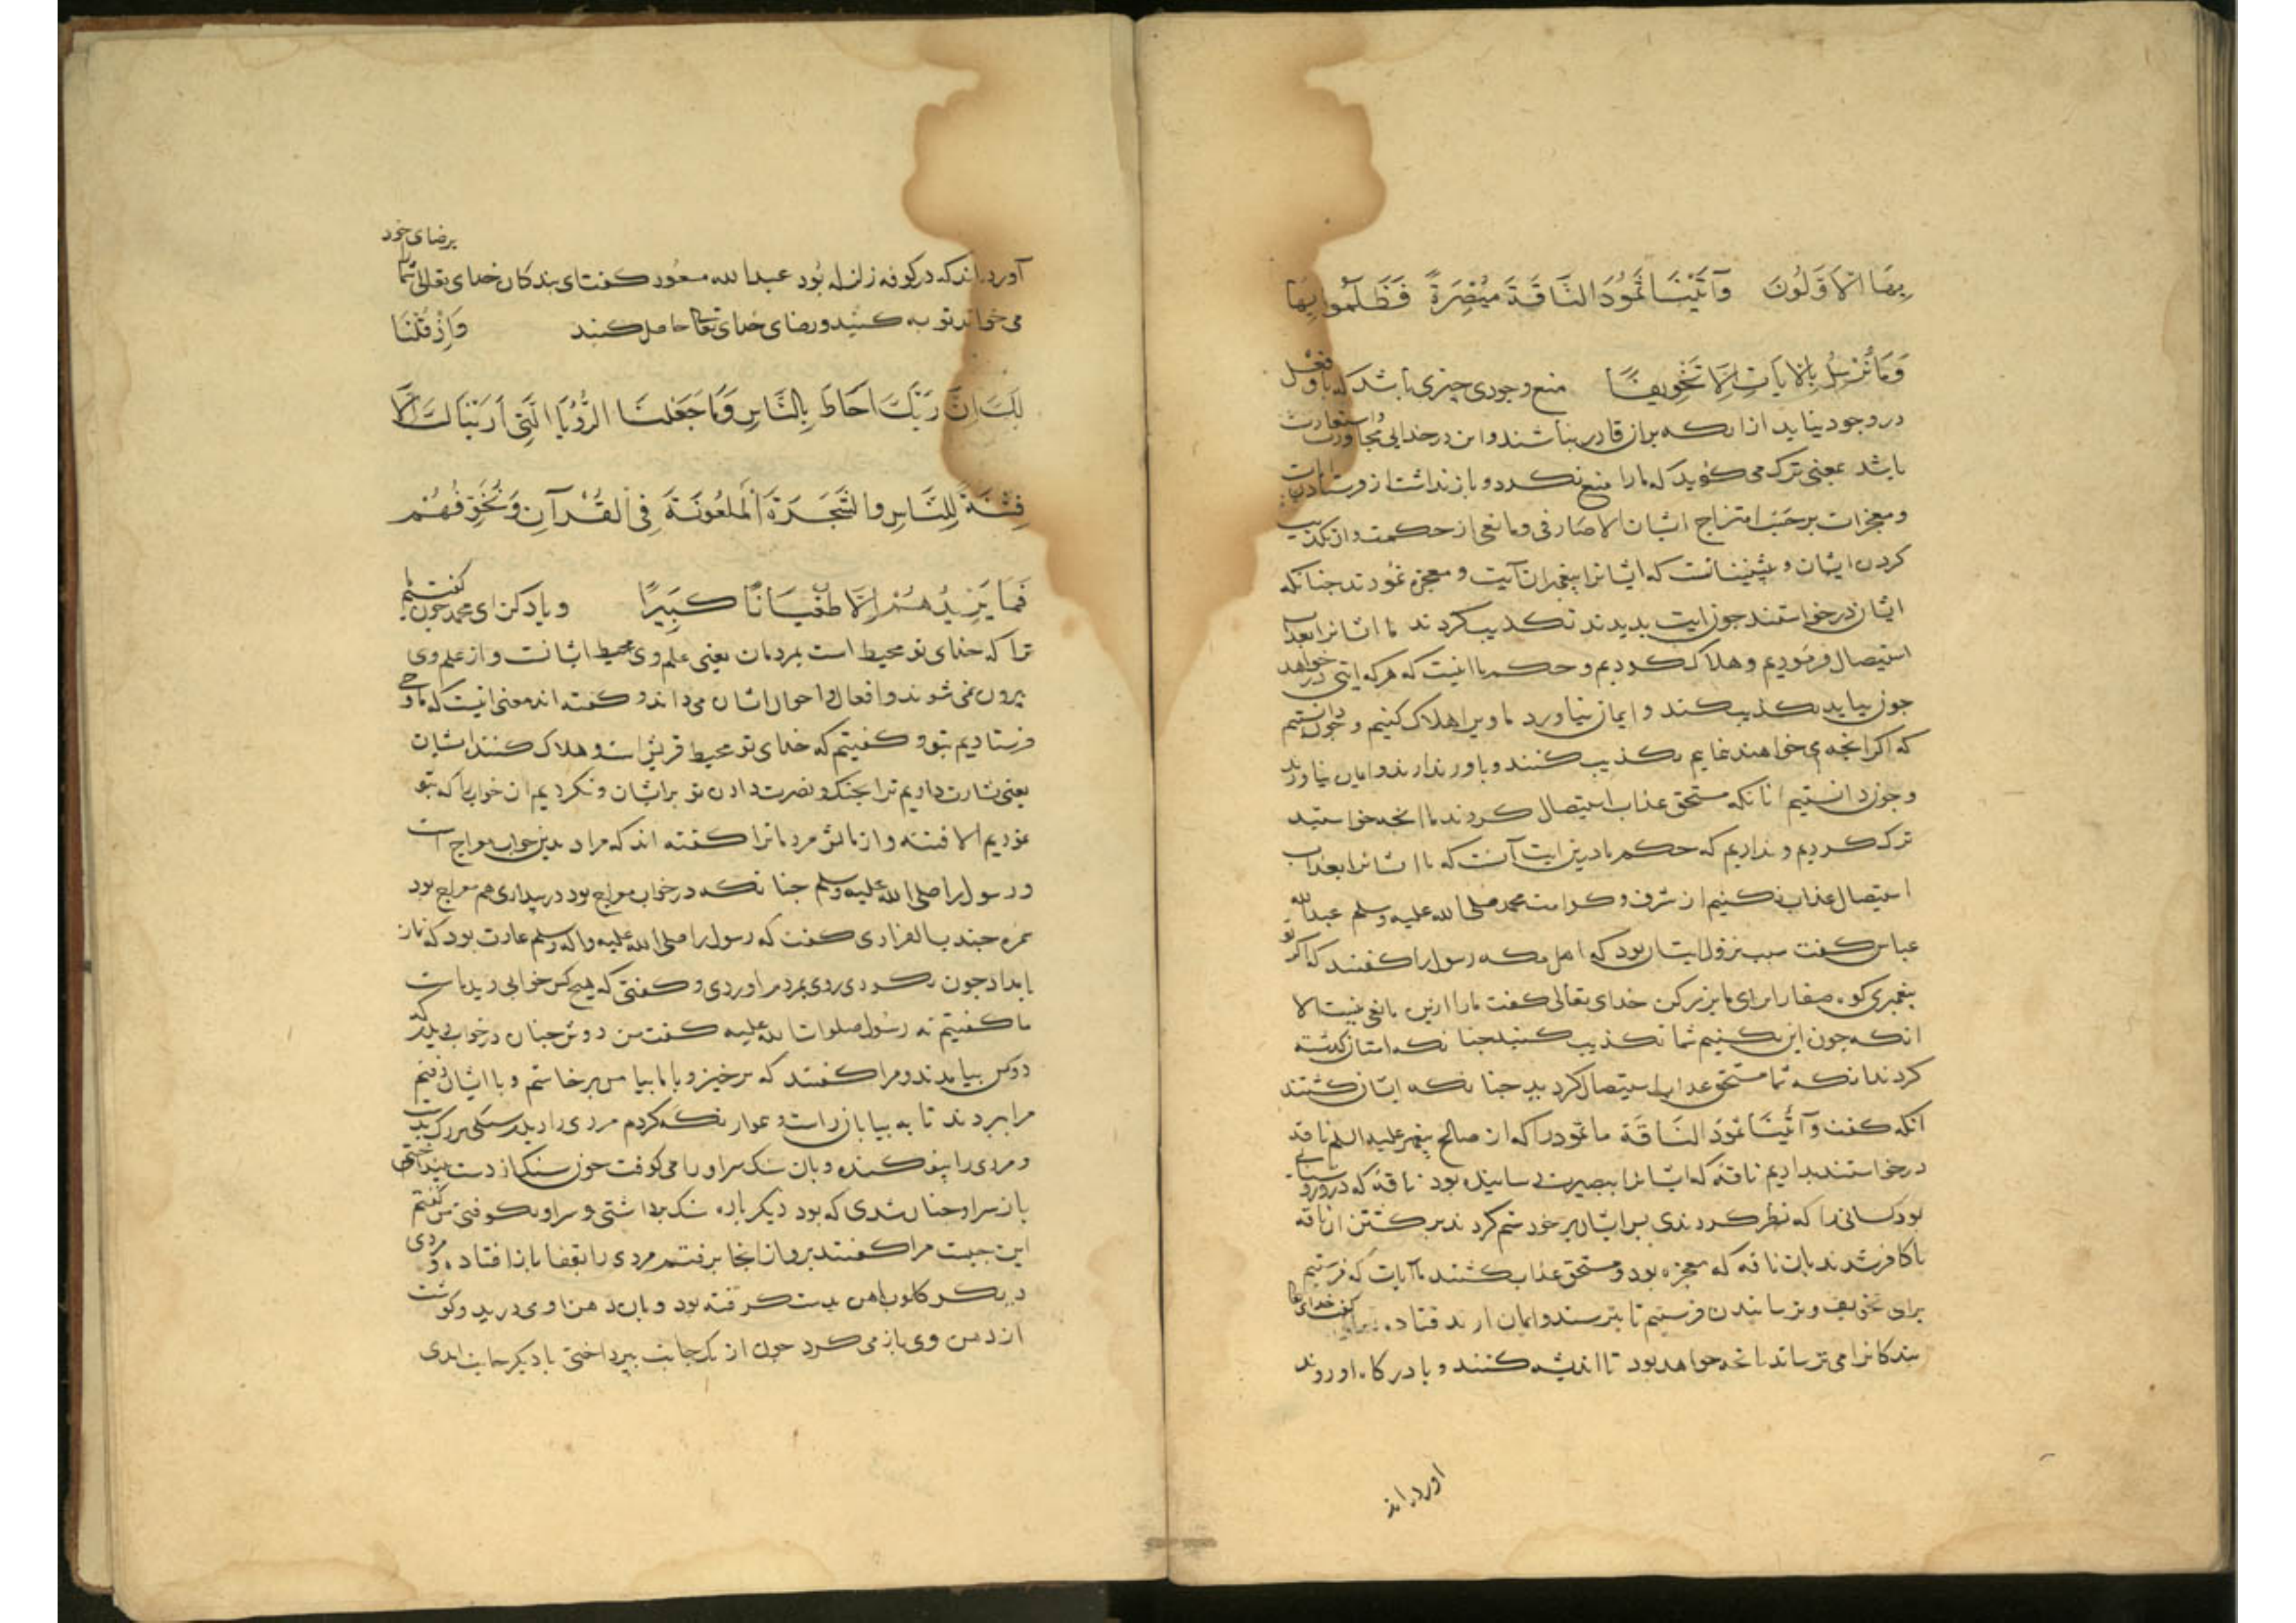 بِهَا الْاَوَّلُونَ وَآتَيْنَا ثَمُودَ النَّاقَةَ مُبْصِرَةً فَظَلَمُوا بِهَا
وَمَا نُرْسِلُ بِالْآيَاتِ اِلَّا تَخْوِيفًا منع وجودی چیزی باشد که با او فعل
در وجود نیاید از انکه بر ان قادر نباشند و این در خدایی مجاز و استعارت
باشد یعنی ترک می کوید که ما را منع نکرد و باز نداشت از فرستادن آیات
و معجزات بر حسب اقتراح ایشان الا صارفی و مانعی از حکمت و ان تکذیب
کردن ایشان و پیشینیانست که ایشانرا پیغمبران آیت و معجزه نمودند چنانکه
ایشان درخواستند چون آیت بدیدند تکذیب کردند ما ایشانرا بعذاب
استیصال فرمودیم و هلاک کردیم و حکم ما اینست که هرکه ایتی درخواهد
چون بیاید تکذیب کند و ایمان نیاورد ما ویرا هلاک کنیم و چون دانستیم
که اکر انچه می خواهند نماییم تکذیب کنند و باور ندارند و ایمان نیاورند
و چون دانستیم انانکه مستحق عذاب استیصال کردند ما انچه خواستید
ترک کردیم و نداریم که حکم ما درین ایت آنست که ما ایشانرا بعذاب
استیصال عذاب نکنیم از شرف و کرامت محمد صلی الله علیه وسلم عبدالله
عباس کفت سبب نزول ایت ان بود که اهل مکه رسول را کفتند که اکر تو
پیغمبری کوه صفا را برای ما بزر کن خدای تعالی کفت ما را ازین مانعی نیست الا
انکه چون این بکنیم شما تکذیب کنید چنانکه امتان کذشته
کردند انکه شما مستحق عذاب استیصال کردید چنانکه ایشان کشتند
انکه کفت وَآتَيْنَا ثَمُودَ النَّاقَةَ ما ثمود را که از صالح پیغمبر علیه السلم ناقه
درخواستند بدادیم ناقه که ایشانرا ببصیرت رساننده بود ناقه که درو
بود کسانی را که نظر کردندی پس ایشان بر خود ستم کردند بر کشتن ان ناقه
تا کافر شدند بان ناقه که معجزه بود و مستحق عذاب کشتند ما آیات که فرستیم
برای تخویف و ترسانیدن فرستیم تا بترسند و ایمان ارند قتاده کفت خدای تعالی
بندکانرا می ترساند بانچه خواهد بود تا اندیشه کنند و با درکاه او روند
اورده اند
آورده اند که در کوفه زلزله بود عبدالله مسعود کفت ای بندکان خدای تعالی شما را برضای خود
می خواند توبه کنید و رضای خدای تعالی حاصل کنید وَاِذْ قُلْنَا
لَكَ اِنَّ رَبَّكَ اَحَاطَ بِالنَّاسِ وَمَا جَعَلْنَا الرُّؤْيَا الَّتِي اَرَيْنَاكَ اِلَّا
فِتْنَةً لِلنَّاسِ وَالشَّجَرَةَ الْمَلْعُونَةَ فِي الْقُرْآنِ وَنُخَوِّفُهُمْ
فَمَا يَزِيدُهُمْ اِلَّا طُغْيَانًا كَبِيرًا و یاد کن ای محمد چون ما کفتیم
ترا که خدای تو محیط است بمردمان یعنی علم وی محیط ایشانست و از علم وی
بیرون نمی شوند و افعال و احوال ایشان می داند و کفته اند معنی انیست که ما وحی
فرستادیم بتو و کفتیم که خدای تو محیط قریش است و هلاک کننده ایشان
یعنی بشارت دادیم ترا بجنک و نصرت دادن تو بر ایشان و نکردیم ان خواب را که بتو
نمودیم الا فتنه و ازمایش مردمانرا کفته اند که مراد بدین خواب معراج است
و رسول را صلی الله علیه وسلم چنانکه در خواب معراج بود در بیداری هم معراج بود
سمره جندب الفزاری کفت که رسول را صلی الله علیه واله وسلم عادت بود که نماز
بامداد چون بکردی روی بمردم اوردی و کفتی که هیچ کس خوابی دیده است
ما کفتیم نه رسول صلوات الله علیه کفت من دوش چنان در خواب دیدم که
دو کس بیامدند و مرا کفتند که برخیز و با ما بیا من برخاستم و با ایشان رفتم
مرا بردند تا به بیابان راست و هموار نکه کردم مردی را دیدم سنکی بزرک بدست
و مردی را بیفکنده و بان سنک سر او را می کوفت چون سنک از دست بینداختی
باز سر او چنان شدی که بود دیکر باره سنک برداشتی و سر او بکوفتی من کفتم
این چیست مرا کفتند برو از انجا برفتم مردی را بقفا باز افتاده و مردی
دیکر کلوب اهن بدست کرفته بود و بان دهن او می درید و کوشت
از دهن وی باز می کرد چون از یک جانب بپرداختی با دیکر جانب امدی